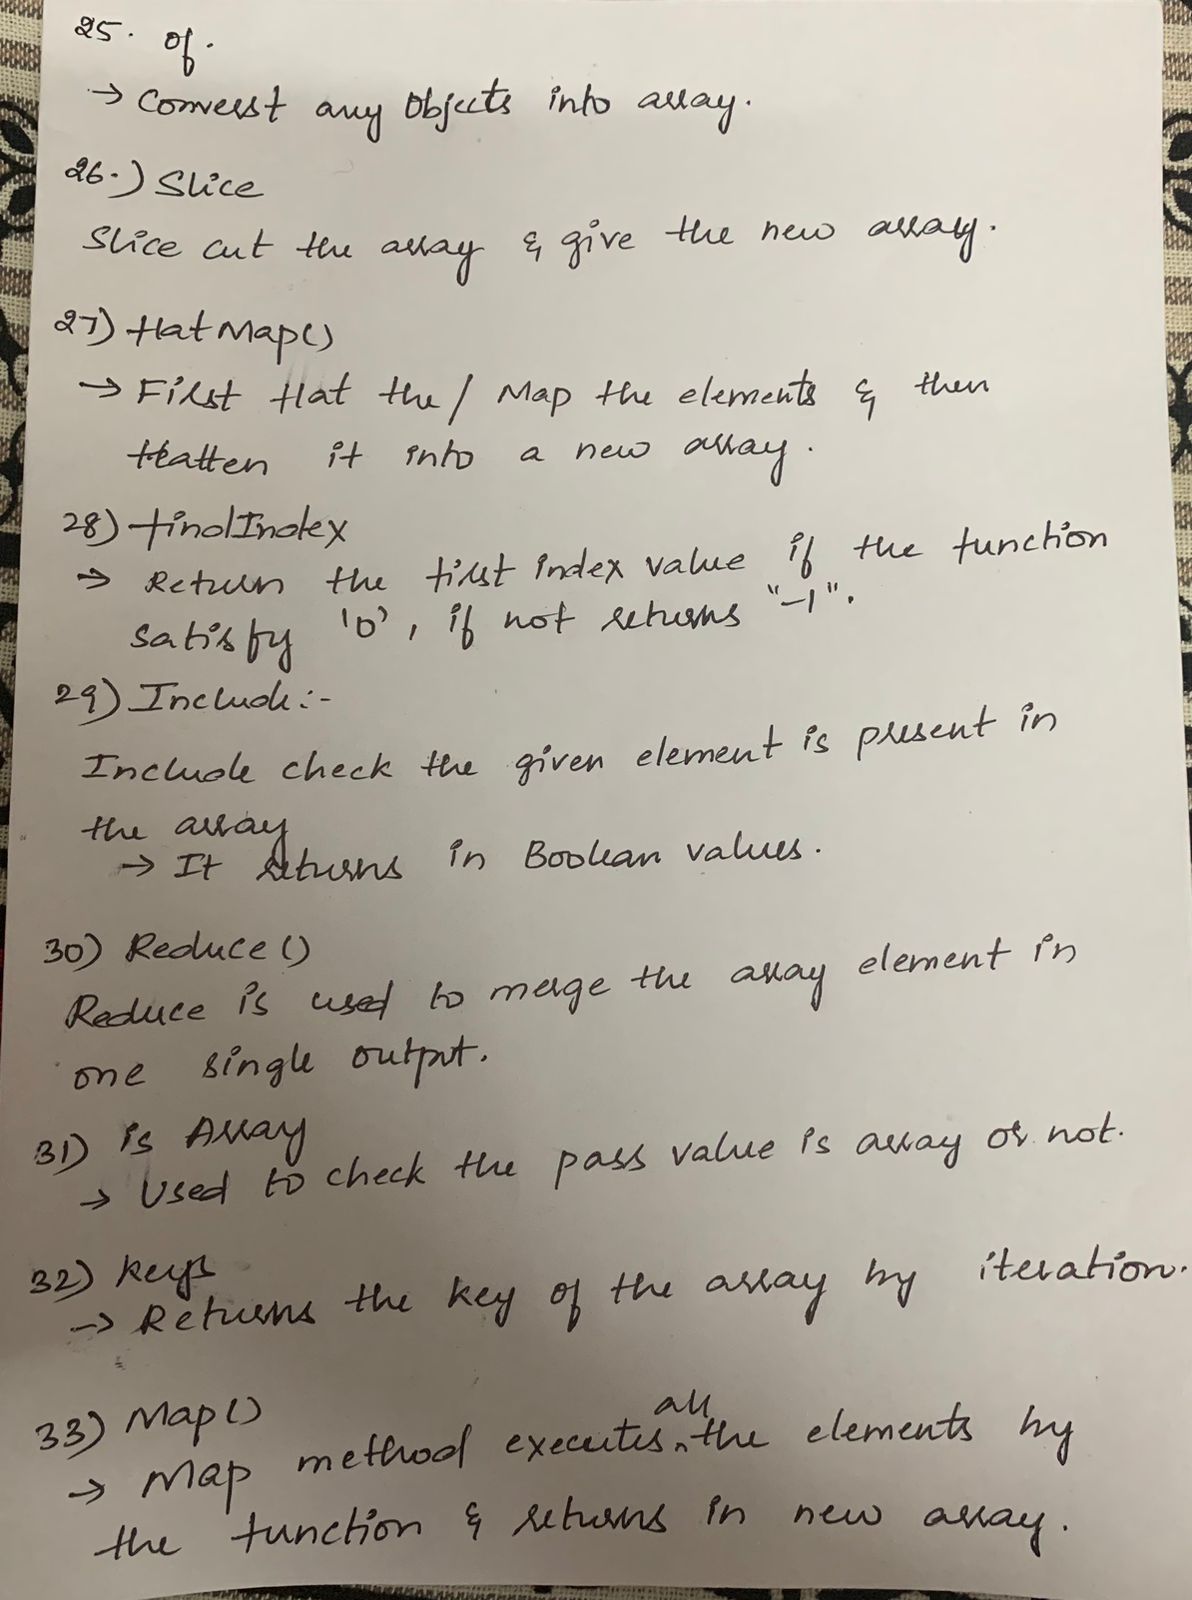 25. of.
→ Convert any Objects into array.
26.) Slice
Slice cut the array & give the new array.
27) flatMap()
→ First flat the / Map the elements & then
flatten it into a new array.
28) findIndex
→ Return the first index value if the function
satisfy '0', if not returns "-1".
29) Include:-
Include check the given element is present in
the array
→ It returns in Boolean values.
30) Reduce()
Reduce is used to merge the array element in
one single output.
31) is Array
→ Used to check the pass value is array or not.
32) keys
→ Returns the key of the array by iteration.
33) Map()
→ Map method executes all the elements by
the function & returns in new array.